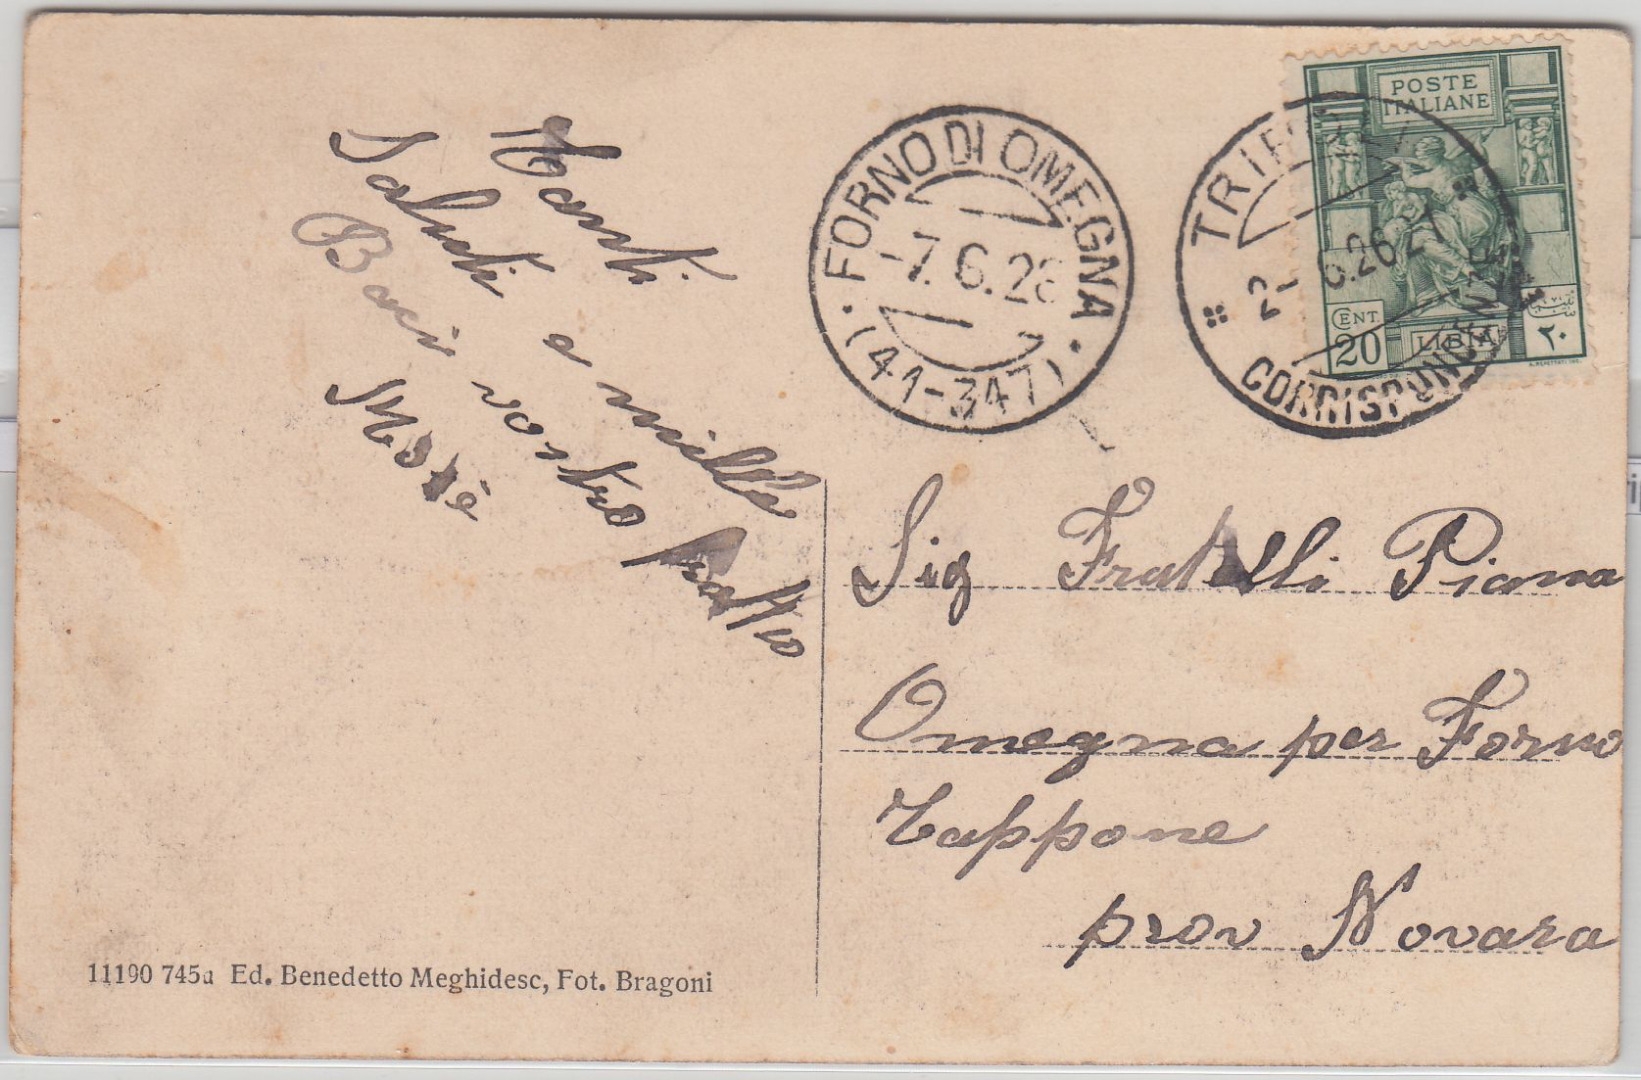 Tanti
Saluti e mille
Baci vostro fratello
Mosè
FORNO DI OMEGNA
-7.6.26
(41-347)
TRIPOLI
2 6.26.21
CORRISPONDENZE
POSTE
ITALIANE
CENT.
20
LIBIA
٢٠
Sig Fratelli Piana
Omegna per Forno
Tappone
prov Novara
11190 745a Ed. Benedetto Meghidesc, Fot. Bragoni